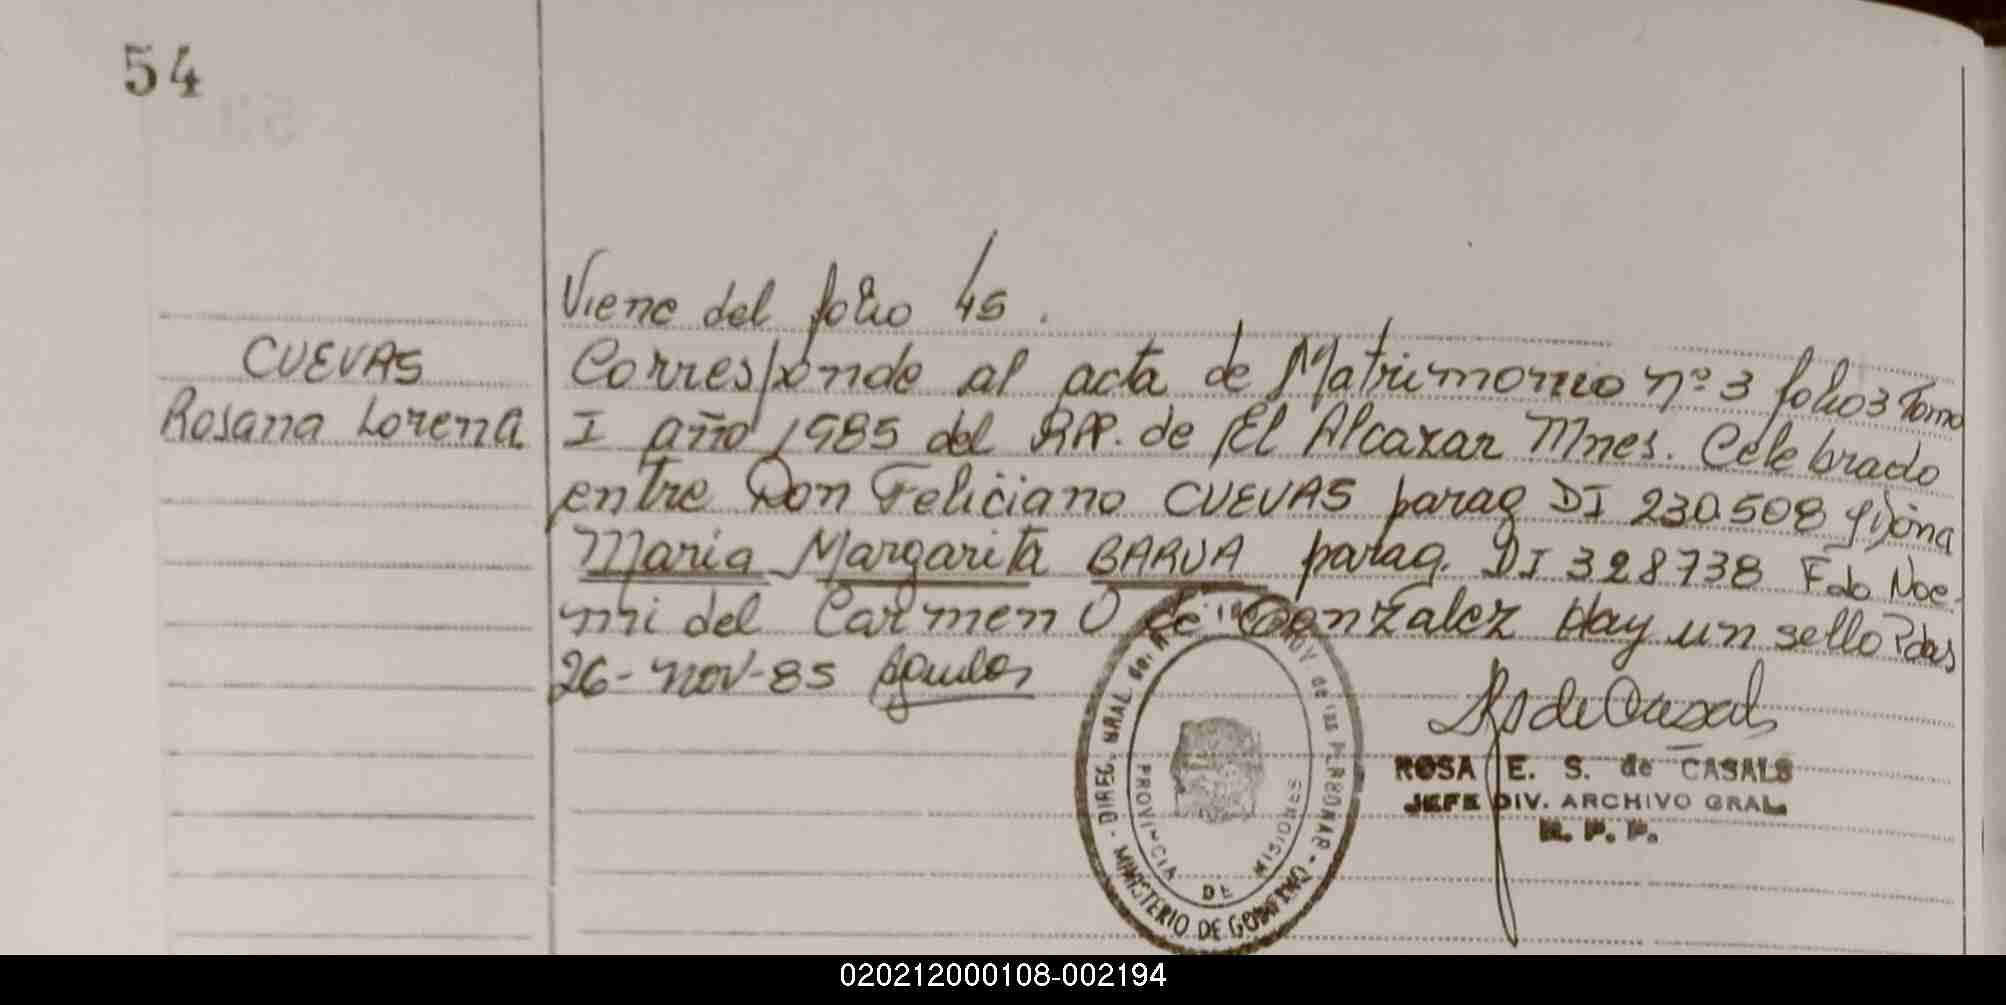 54
CUEVAS
Rosana Lorena
Viene del folio 45.
Corresponde al acta de Matrimonio nº 3 folio 3 Tomo
I año 1985 del RPP. de El Alcazar Mnes. Celebrado
entre Don Feliciano CUEVAS parag DI 230.508 y Dona
Maria Margarita BARUA parag. DI 328738 Fdo Noe-
mi del Carmen O de Gonzalez Hay un sello Pdas
26-nov-85
DIREC. GRAL del PROV de las PERSONAS - MINISTERIO DE GOBIERNO -
PROVINCIA DE MISIONES
ROSA E. S. de CASALS
JEFE DIV. ARCHIVO GRAL
R. P. P.
020212000108-002194